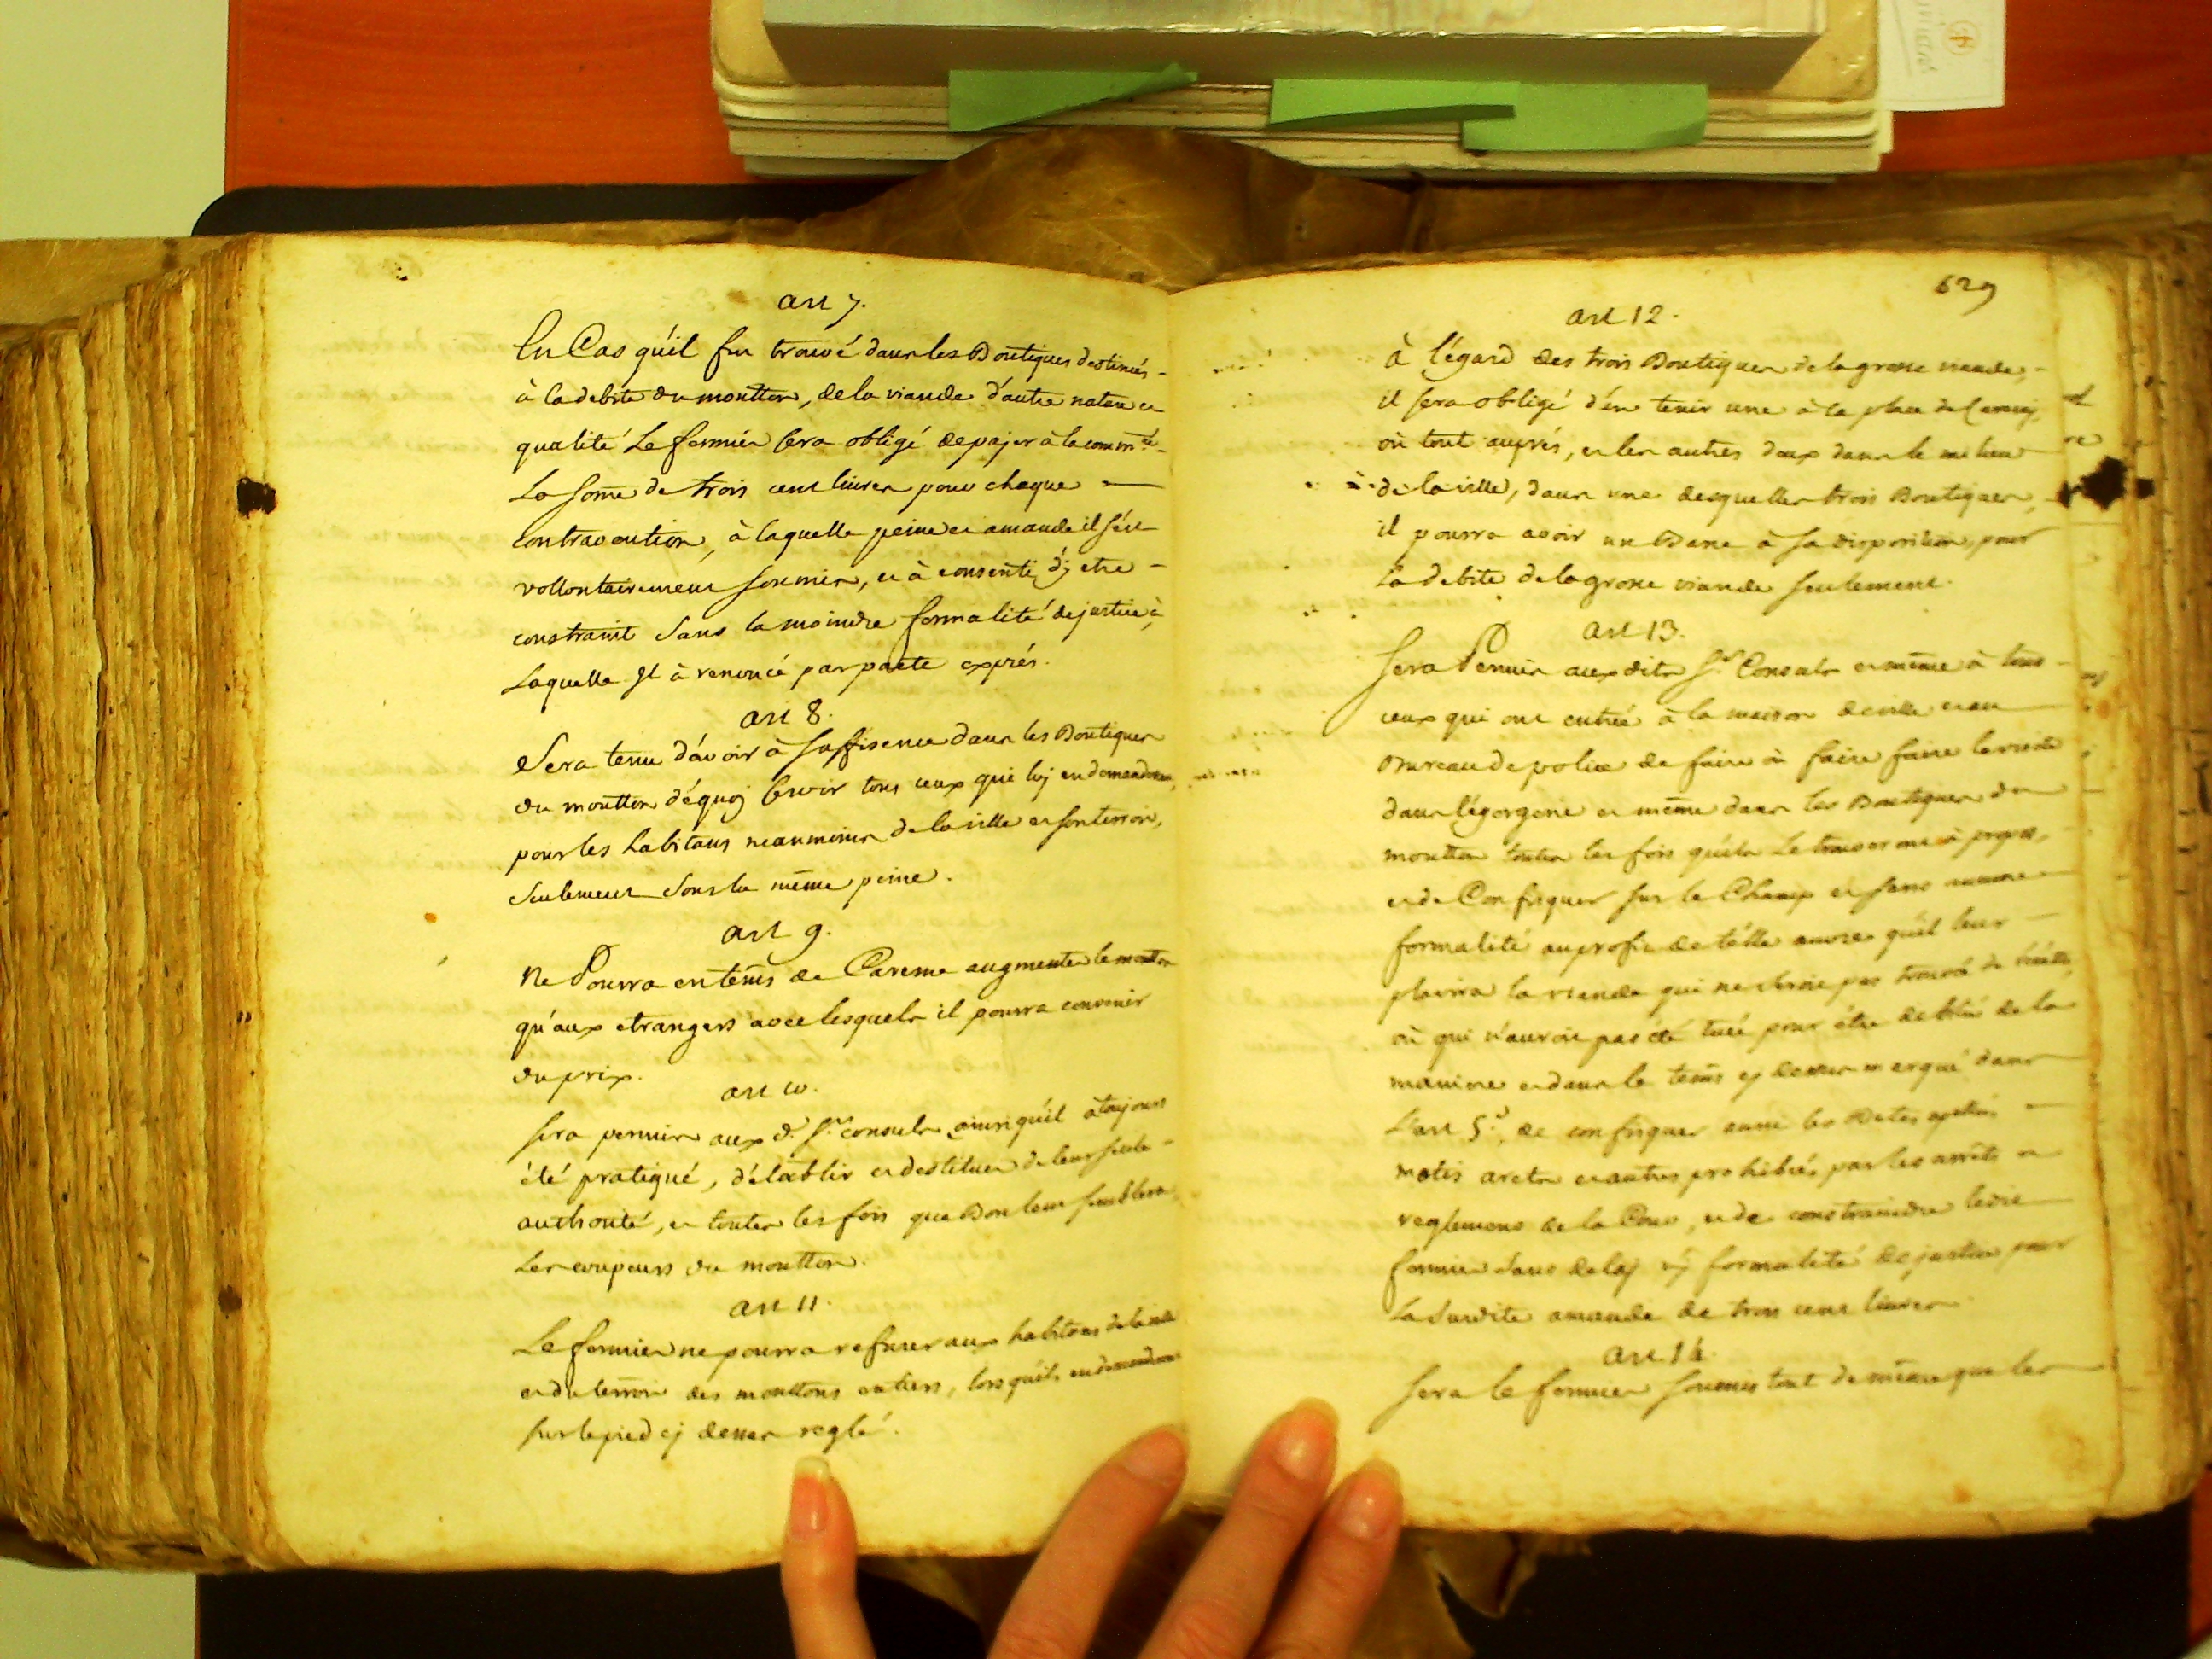 art 7.
En Cas qu'il fut trouvé dans les Boutiques destinées
à la debite du moutton, de la viande d'autre nature et
qualité Le fermier sera obligé de pajer à la commté
La some de trois cent livres pour chaque
contravention, à laquelle peine et amande il s'est
vollontairement soumis, et à consenti d'j etre
constraint sans la moindre formalité de justice à
Laquelle Jl à renoncé par pacte exprés.
art 8.
Sera tenu d'avoir à suffisence dans les Boutiques
du moutton dequoj servir tous ceux qui luj en demanderont,
pour les habitans neanmoins de la ville et son terroir,
seulement sous la même peine.
art 9.
Ne Pourra en tems de Careme augmenter le moutton
qu'aux etrangers avec lesquels il pourra convenir
du prix.
art 10.
sera permis aux d. Srs. consuls ainsi qu'il à toujours
été pratiqué, d'établir et destituer de leur seule
authorité, et toutes les fois que Bon leur semblera
Les coupeurs du moutton.
art 11.
Le fermier ne pourra refuser aux habitans de la ville
et du terroir des mouttons entiers, lorsqu'ils en demanderont
sur le pied cj dessus reglé.
629
art 12.
à l'égard des trois Boutiques de la grosse viande,
il sera obligé d'en tenir une à la place
où tout auprés, et les autres deux dans le milieu
de la ville, dans une desquelles trois Boutiques,
il pourra avoir un Banc à sa disposition, pour
La debite de la grosse viande seulement.
art 13.
Sera Permis aux dits Srs. Consuls et même à tous
ceux qui ont entrée à la maison de ville et au
Bureau de police de faire où faire faire la visite
dans l'égorgerie et même dans les Boutiques du
moutton toutes les fois qu'ils Le trouveront à propos,
et de Confisquer sur le Champ et sans aucune
formalité au profit de télle œuvre qu'il leur
plairra la viande qui ne seroit pas trouvé de
où qui n'auroit pas eté tuée pour étre debitée de la
maniere et dans le tems cj dessus marqué dans
L'art 5e., de confisquer aussi les Betes apellées
motis arets et autres prohibées par les arrêts et
reglemens de la Cour, et de constraindre ledit
fermier sans delaj nj formalité de justice pour
La susdite amande de trois cent livres
art 14.
Sera le fermier soumis tout de même que les